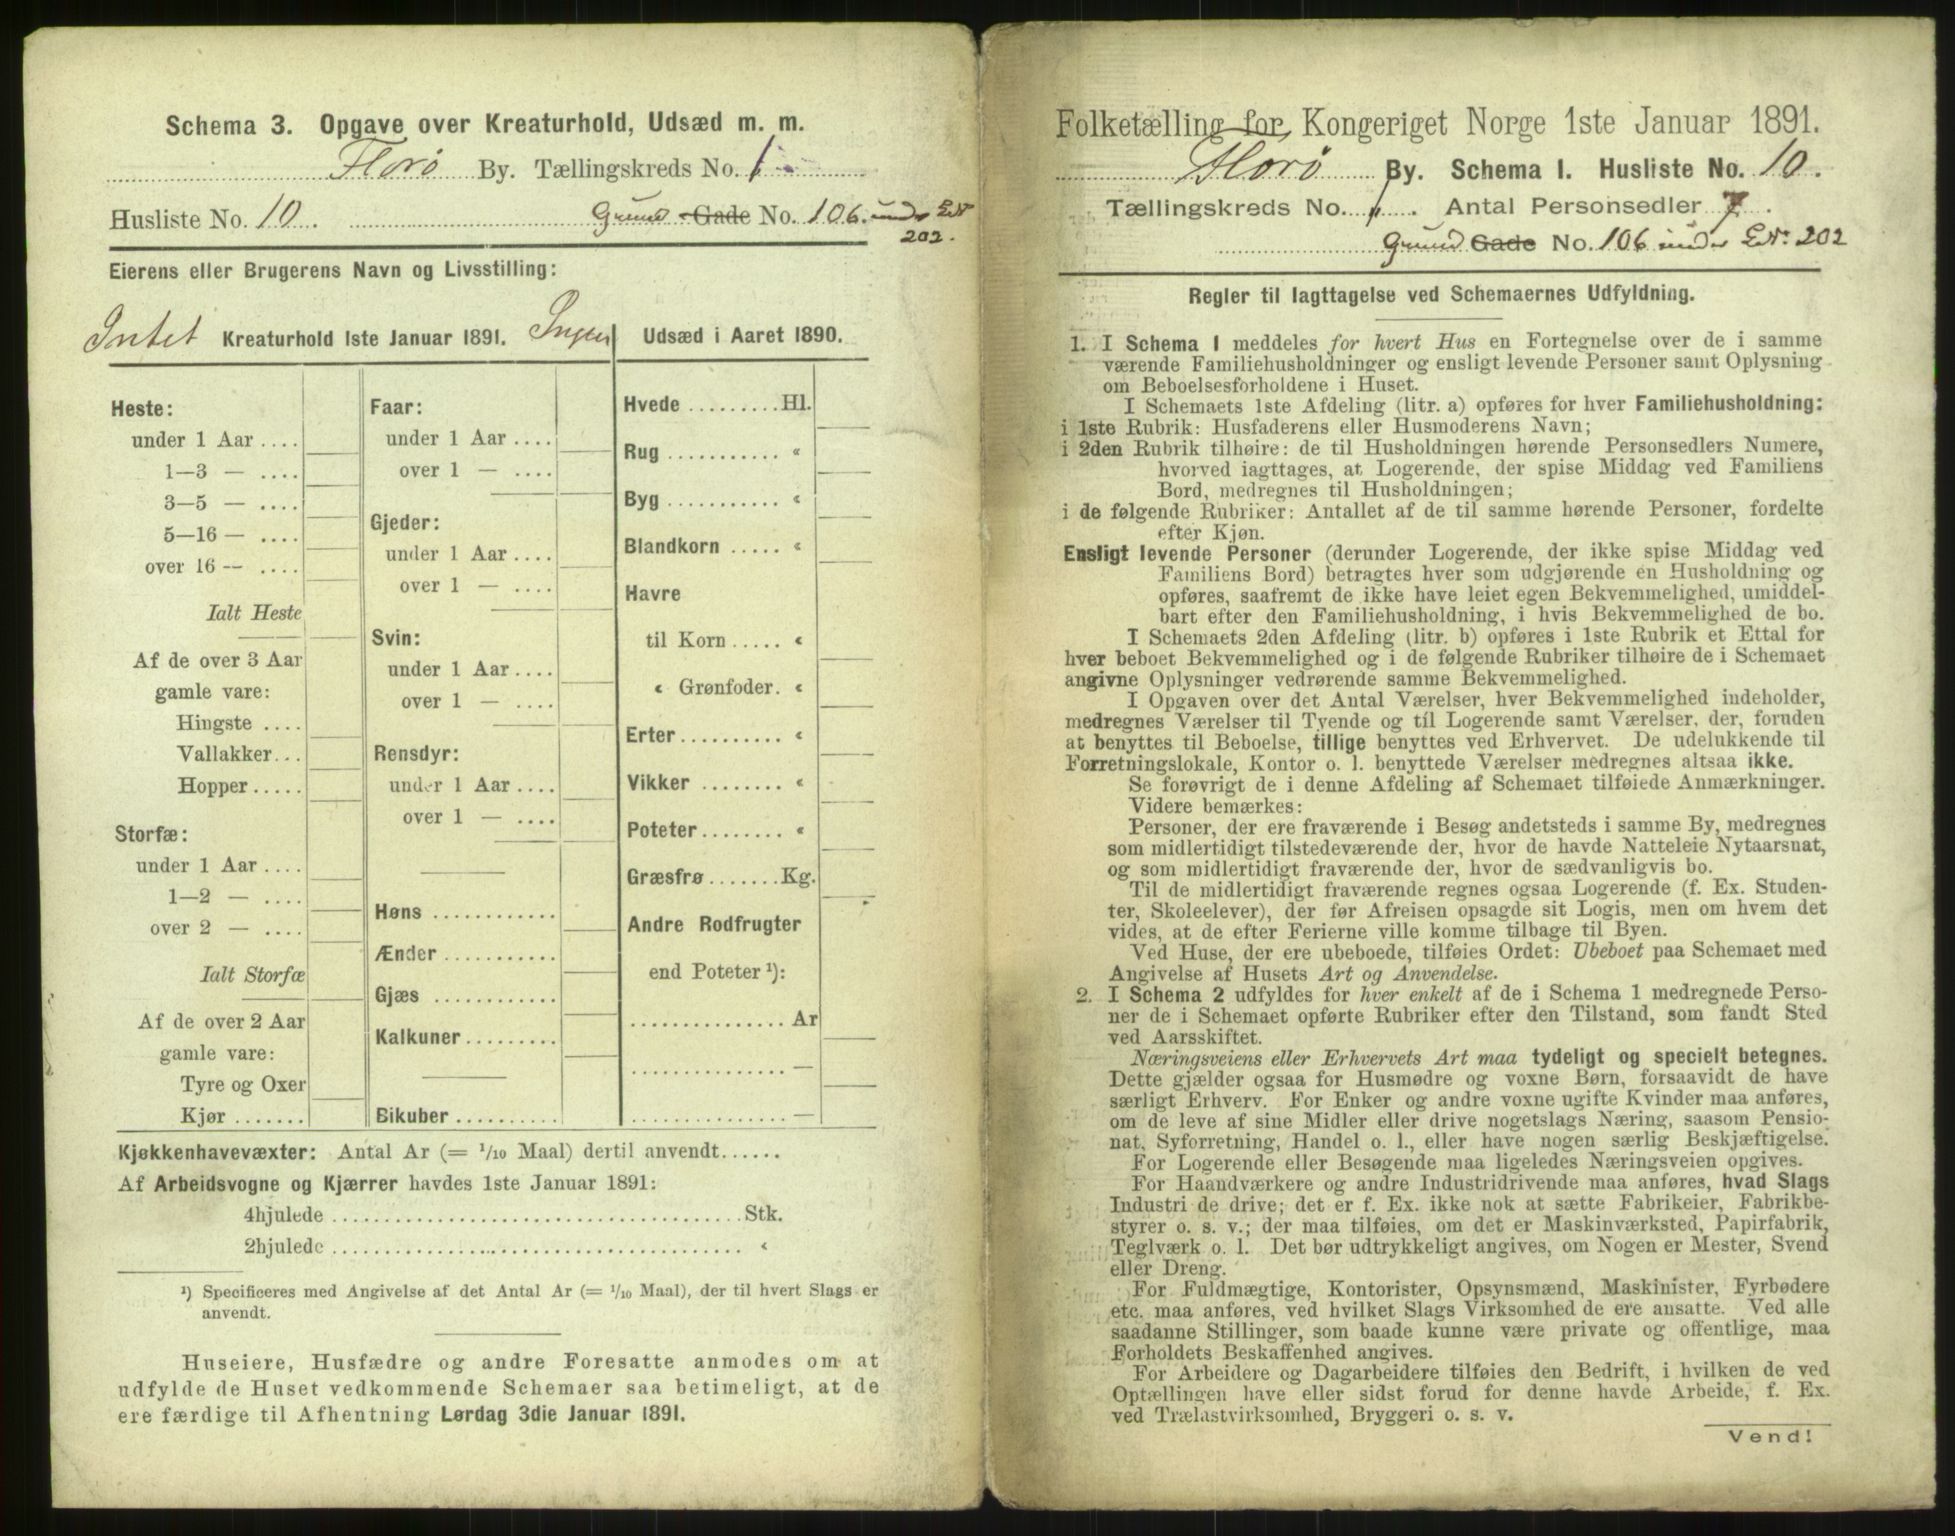 Schema 3. Opgave over Kreaturhold, Udsæd m. m.
Florö By. Tællingskreds No. 1
Husliste No. 10 . Grund Gade No. 106. under L.N.
202.
Eierens eller Brugerens Navn og Livsstilling:
Intet Kreaturhold 1ste Januar 1891.
Heste:
under 1 Aar ....
1—3 — ....
3—5 — ....
5—16 — ....
over 16 — ....
Ialt Heste
Af de over 3 Aar
gamle vare:
Hingste ....
Vallakker...
Hopper .....
Storfæ:
under 1 Aar ....
1—2 — ....
over 2 — ....
Ialt Storfæ
Af de over 2 Aar
gamle vare:
Tyre og Oxer
Kjør .......
Faar:
under 1 Aar ....
over 1 — ....
Gjeder:
under 1 Aar ....
over 1 — ....
Svin:
under 1 Aar ....
over 1 — ....
Rensdyr:
under 1 Aar ....
over 1 — ....
Høns ............
Ænder ...........
Gjæs ............
Kalkuner.........
Bikuber ..........
Ingen Udsæd i Aaret 1890.
Hvede .........Hl.
Rug ........... «
Byg ............ «
Blandkorn ..... «
Havre
til Korn ..... «
« Grønfoder. «
Erter.......... «
Vikker ........ «
Poteter........ «
Græsfrø .......Kg.
Andre Rodfrugter
end Poteter ¹):
............... Ar
............... —
............... —
Kjøkkenhavevæxter: Antal Ar (= 1/10 Maal) dertil anvendt......
Af Arbeidsvogne og Kjærrer havdes 1ste Januar 1891:
4hjulede ........................................Stk.
2hjulede ........................................ «
¹) Specificeres med Angivelse af det Antal Ar (= 1/10 Maal), der til hvert Slags er
anvendt.
Huseiere, Husfædre og andre Foresatte anmodes om at
udfylde de Huset vedkommende Schemaer saa betimeligt, at de
ere færdige til Afhentning Lørdag 3die Januar 1891.
Folketælling for Kongeriget Norge 1ste Januar 1891.
Florö By. Schema 1. Husliste No. 10.
Tællingskreds No. 1. Antal Personsedler 7.
Grund Gade No. 106 under L.N. 202
Regler til Iagttagelse ved Schemaernes Udfyldning.
1. I Schema 1 meddeles for hvert Hus en Fortegnelse over de i samme
værende Familiehusholdninger og ensligt levende Personer samt Oplysning
om Beboelsesforholdene i Huset.
I Schemaets 1ste Afdeling (litr. a) opføres for hver Familiehusholdning:
i 1ste Rubrik: Husfaderens eller Husmoderens Navn;
i 2den Rubrik tilhøire: de til Husholdningen hørende Personsedlers Numere,
hvorved iagttages, at Logerende, der spise Middag ved Familiens
Bord, medregnes til Husholdningen;
i de følgende Rubriker: Antallet af de til samme hørende Personer, fordelte
efter Kjøn.
Ensligt levende Personer (derunder Logerende, der ikke spise Middag ved
Familiens Bord) betragtes hver som udgjørende en Husholdning og
opføres, saafremt de ikke have leiet egen Bekvemmelighed, umiddel-
bart efter den Familiehusholdning, i hvis Bekvemmelighed de bo.
I Schemaets 2den Afdeling (litr. b) opføres i 1ste Rubrik et Ettal for
hver beboet Bekvemmelighed og i de følgende Rubriker tilhøire de i Schemaet
angivne Oplysninger vedrørende samme Bekvemmelighed.
I Opgaven over det Antal Værelser, hver Bekvemmelighed indeholder,
medregnes Værelser til Tyende og til Logerende samt Værelser, der, foruden
at benyttes til Beboelse, tillige benyttes ved Erhvervet. De udelukkende til
Forretningslokale, Kontor o. l. benyttede Værelser medregnes altsaa ikke.
Se forøvrigt de i denne Afdeling af Schemaet tilføiede Anmærkninger.
Videre bemærkes:
Personer, der ere fraværende i Besøg andetsteds i samme By, medregnes
som midlertidigt tilstedeværende der, hvor de havde Natteleie Nytaarsnat,
og som midlertidigt fraværende der, hvor de sædvanligvis bo.
Til de midlertidigt fraværende regnes ogsaa Logerende (f. Ex. Studen-
ter, Skoleelever), der før Afreisen opsagde sit Logis, men om hvem det
vides, at de efter Ferierne ville komme tilbage til Byen.
Ved Huse, der ere ubeboede, tilføies Ordet: Ubeboet paa Schemaet med
Angivelse af Husets Art og Anvendelse.
2. I Schema 2 udfyldes for hver enkelt af de i Schema 1 medregnede Perso-
ner de i Schemaet opførte Rubriker efter den Tilstand, som fandt Sted
ved Aarsskiftet.
Næringsveiens eller Erhvervets Art maa tydeligt og specielt betegnes.
Dette gjælder ogsaa for Husmødre og voxne Børn, forsaavidt de have
særligt Erhverv. For Enker og andre voxne ugifte Kvinder maa anføres,
om de leve af sine Midler eller drive nogetslags Næring, saasom Pensio-
nat, Syforretning, Handel o. l., eller have nogen særlig Beskjæftigelse.
For Logerende eller Besøgende maa ligeledes Næringsveien opgives.
For Haandværkere og andre Industridrivende maa anføres, hvad Slags
Industri de drive; det er f. Ex. ikke nok at sætte Fabrikeier, Fabrikbe-
styrer o. s. v.; der maa tilføies, om det er Maskinværksted, Papirfabrik,
Teglværk o. l. Det bør udtrykkeligt angives, om Nogen er Mester, Svend
eller Dreng.
For Fuldmægtige, Kontorister, Opsynsmænd, Maskinister, Fyrbødere
etc. maa anføres, ved hvilket Slags Virksomhed de ere ansatte. Ved alle
saadanne Stillinger, som baade kunne være private og offentlige, maa
Forholdets Beskaffenhed angives.
For Arbeidere og Dagarbeidere tilføies den Bedrift, i hvilken de ved
Optællingen have eller sidst forud for denne havde Arbeide, f. Ex.
ved Trælastvirksomhed, Bryggeri o. s. v.
Vend!